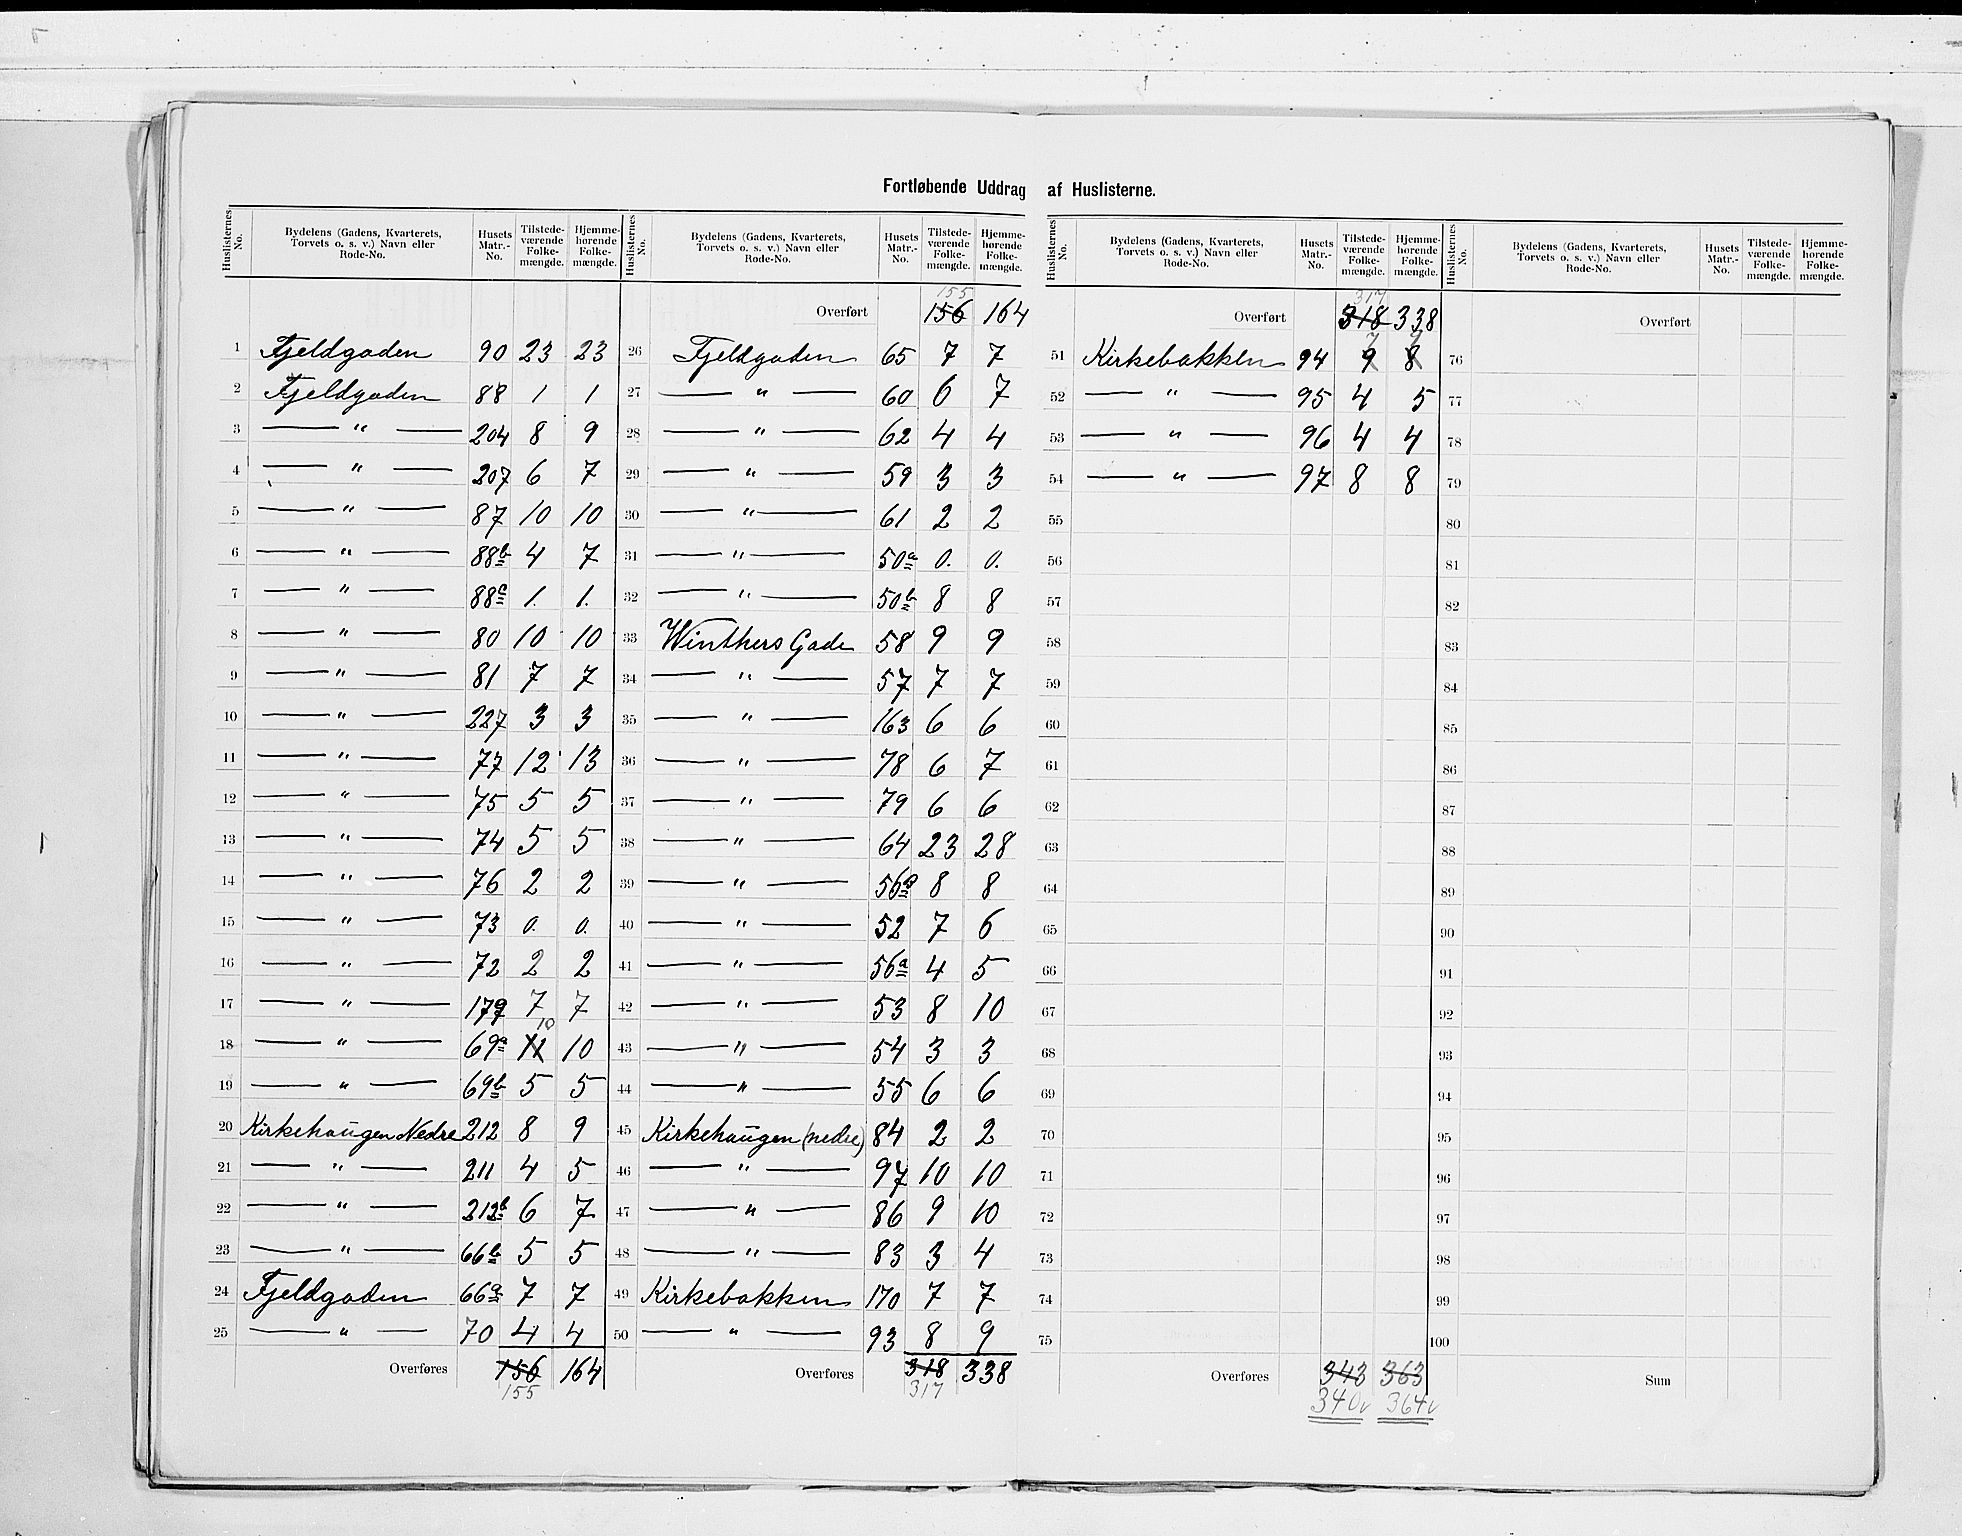 Fortløbende Uddrag af Huslisterne.
Huslisternes No. Bydelens (Gadens, Kvarterets, Torvets o. s. v.) Navn eller Rode-No. Husets Matr.-No. Tilstedeværende Folkemængde. Hjemmehørende Folkemængde.
1 Fjeldgaden 90 23 23
2 Fjeldgaden 88 1 1
3 — " — 204 8 9
4 — " — 207 6 7
5 — " — 87 10 10
6 — " — 88b 4 7
7 — " — 88c 1. 1.
8 — " — 80 10 10
9 — " — 81 7 7
10 — " — 227 3 3
11 — " — 77 12 13
12 — " — 75 5 5
13 — " — 74 5 5
14 — " — 76 2 2
15 — " — 73 0. 0.
16 — " — 72 2 2
17 — " — 179 7 7
18 — " — 69a 11 10 10
19 — " — 69b 5 5
20 Kirkehaugen Nedre 212 8 9
21 — " — 211 4 5
22 — " — 212b 6 7
23 — " — 66b 5 5
24 Fjeldgaden 66a 7 7
25 — " — 70 4 4
Overføres 156 164
155
Huslisternes No. Bydelens (Gadens, Kvarterets, Torvets o. s. v.) Navn eller Rode-No. Husets Matr.-No. Tilstedeværende Folkemængde. Hjemmehørende Folkemængde.
155
Overført 156 164
26 Fjeldgaden 65 7 7
27 — " — 60 6 7
28 — " — 62 4 4
29 — " — 59 3 3
30 — " — 61 2 2
31 — " — 50a 0. 0.
32 — " — 50b 8 8
33 Winthers Gade 58 9 9
34 — " — 57 7 7
35 — " — 163 6 6
36 — " — 78 6 7
37 — " — 79 6 6
38 — " — 64 23 28
39 — " — 56 8 8
40 — " — 52 7 6
41 — " — 56a 4 5
42 — " — 53 8 10
43 — " — 54 3 3
44 — " — 55 6 6
45 Kirkehaugen (nedre) 84 2 2
46 — " — 97 10 10
47 — " — 86 9 10
48 — " — 83 3 4
49 Kirkebakken 170 7 7
50 — " — 93 8 9
Overføres 318 338
317
Huslisternes No. Bydelens (Gadens, Kvarterets, Torvets o. s. v.) Navn eller Rode-No. Husets Matr.-No. Tilstedeværende Folkemængde. Hjemmehørende Folkemængde.
317
Overført 318 338
7 7
51 Kirkebakken 94 9 8
52 — " — 95 4 5
53 — " — 96 4 4
54 — " — 97 8 8
55
56
57
58
59
60
61
62
63
64
65
66
67
68
69
70
71
72
73
74
75
Overføres 343 363
340 v 364 v
Huslisternes No. Bydelens (Gadens, Kvarterets, Torvets o. s. v.) Navn eller Rode-No. Husets Matr.-No. Tilstedeværende Folkemængde. Hjemmehørende Folkemængde.
Overført
76
77
78
79
80
81
82
83
84
85
86
87
88
89
90
91
92
93
94
95
96
97
98
99
100
Sum